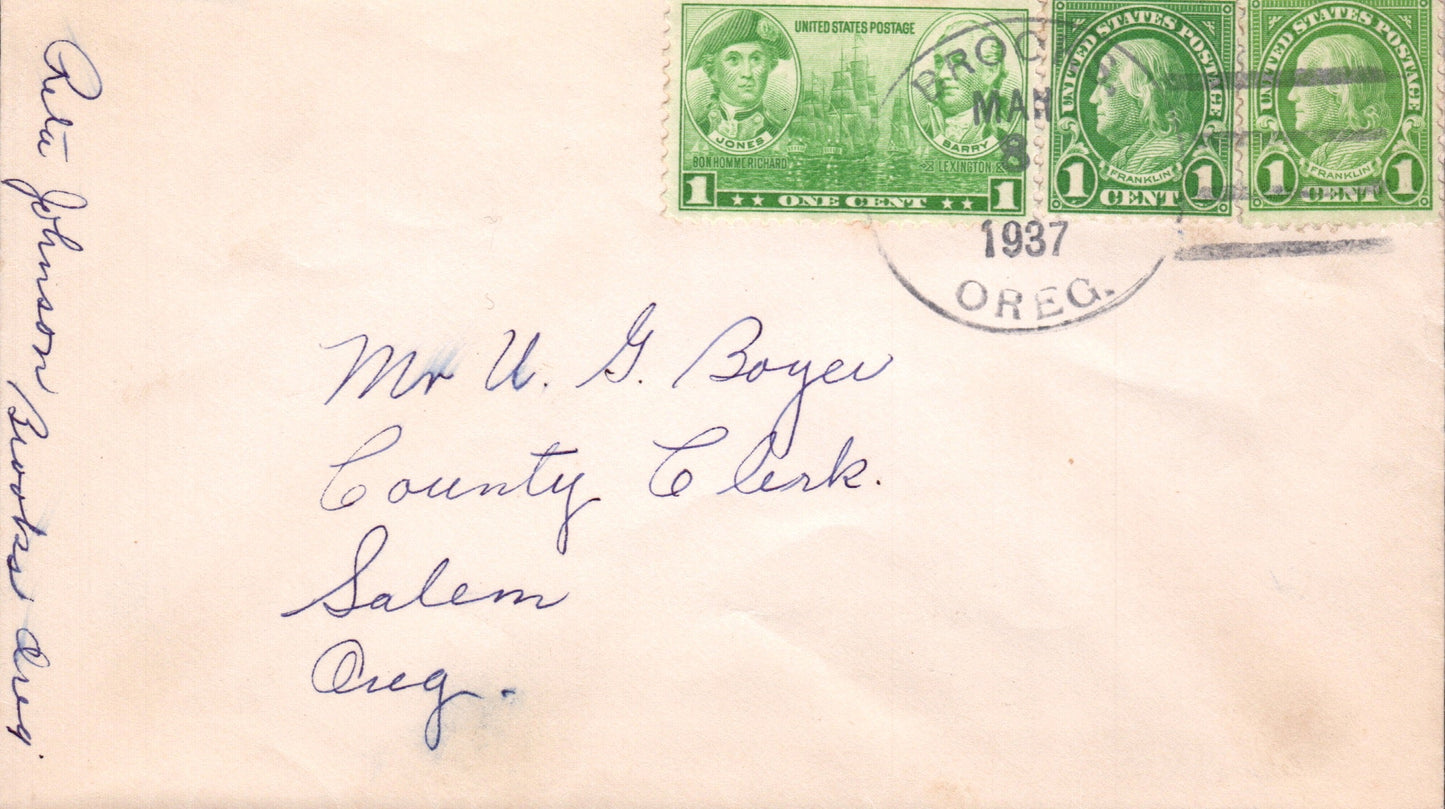 UNITED STATES POSTAGE
JONES
BARRY
BON HOMME RICHARD
LEXINGTON
1 ★★ ONE CENT ★★ 1
UNITED STATES POSTAGE
FRANKLIN
1 CENT 1
UNITED STATES POSTAGE
FRANKLIN
1 CENT 1
BROOKS
MAR
8
1937
OREG.
Reta Johnson Brooks Oreg.
Mr U. G. Boyer
County Clerk.
Salem
Oreg.